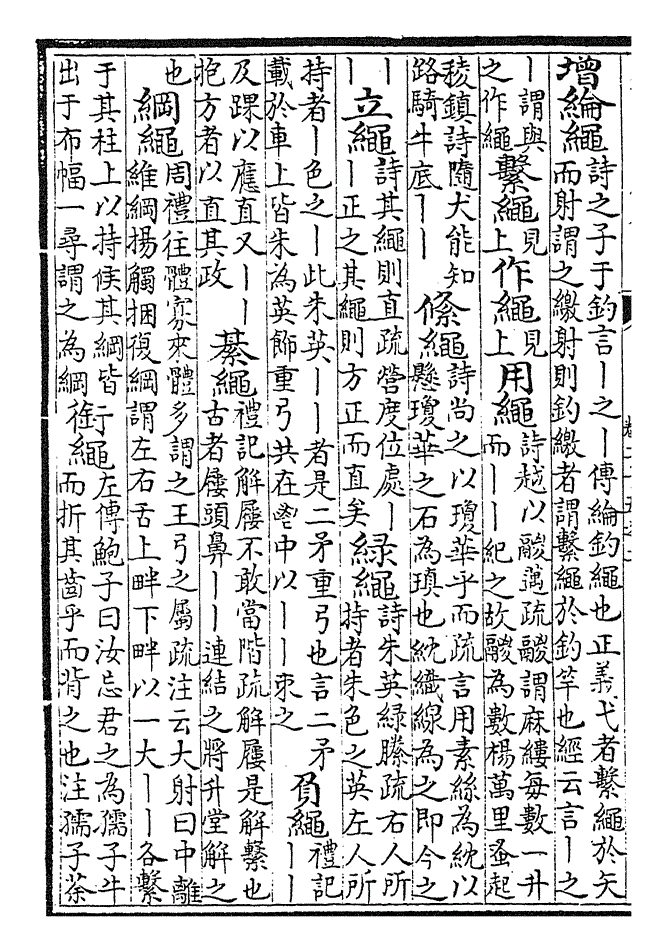 增綸繩詩之子于釣言丨之丨傳綸釣繩也正義弋者繫繩於矢
而射謂之繳射則釣繳者謂繫繩於釣竿也經云言丨之
丨謂與
之作繩
繫繩見
上
作繩見
上
用繩詩越以鬷邁疏鬷謂麻縷每數一升
而丨丨紀之故鬷為數楊萬里蚤起
稜鎮詩隨犬能知
路騎牛底丨丨
絛繩詩尚之以瓊華乎而疏言用素絲為紞以
懸瓊華之石為瑱也紞織線為之即今之
丨
丨
立繩詩其繩則直疏營度位處丨
丨正之其繩則方正而直矣
緑繩詩朱英緑縢疏右人所
持者朱色之英左人所
持者丨色之丨此朱英丨丨者是二矛重弓也言二矛
載於車上皆朱為英飾重弓共在鬯中以丨丨束之
負繩禮記
丨丨
及踝以應直又丨丨
抱方者以直其政
綦繩禮記解屨不敢當階疏解屨是解繫也
古者屨頭鼻丨丨連結之將升堂解之
也
綱繩周禮往體寡來體多謂之王弓之屬疏注云大射曰中離
維綱揚觸捆復綱謂左右舌上畔下畔以一大丨丨各繫
于其柱上以持侯其綱皆
出于布幅一尋謂之為綱
銜繩左傳鮑子曰汝忘君之為孺子牛
而折其齒乎而背之也注孺子荼